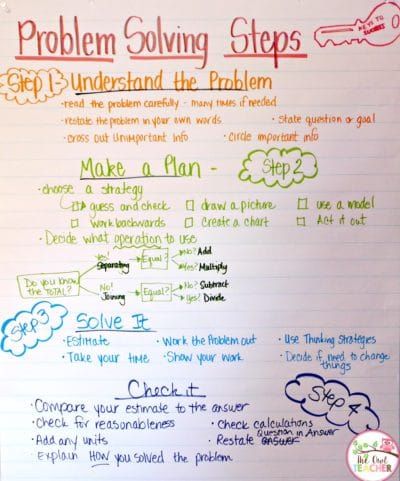 Problem Solving Steps
KEYS TO SUCCESS
Step 1 Understand the Problem
• read the problem carefully - many times if needed
• restate the problem in your own words • State question or goal
• cross out unimportant info • Circle important info
Make a Plan - Step 2
• choose a strategy
guess and check draw a picture use a model
work backwards Create a chart Act it out
• Decide what operation to use
Do you know the TOTAL?
Yes! Separating Equal? No? Add
Yes? Multiply
No! Joining Equal? No? Subtract
Yes! Divide
Step 3 Solve It
• Estimate • Work the Problem out • Use Thinking Strategies
• Take your time • Show your work • Decide if need to change things
Check it Step 4
• Compare your estimate to the answer
• Check for reasonableness • Check calculations
• Add any units • Restate answer Question in Answer
• Explain HOW you solved the problem
the Owl TEACHER